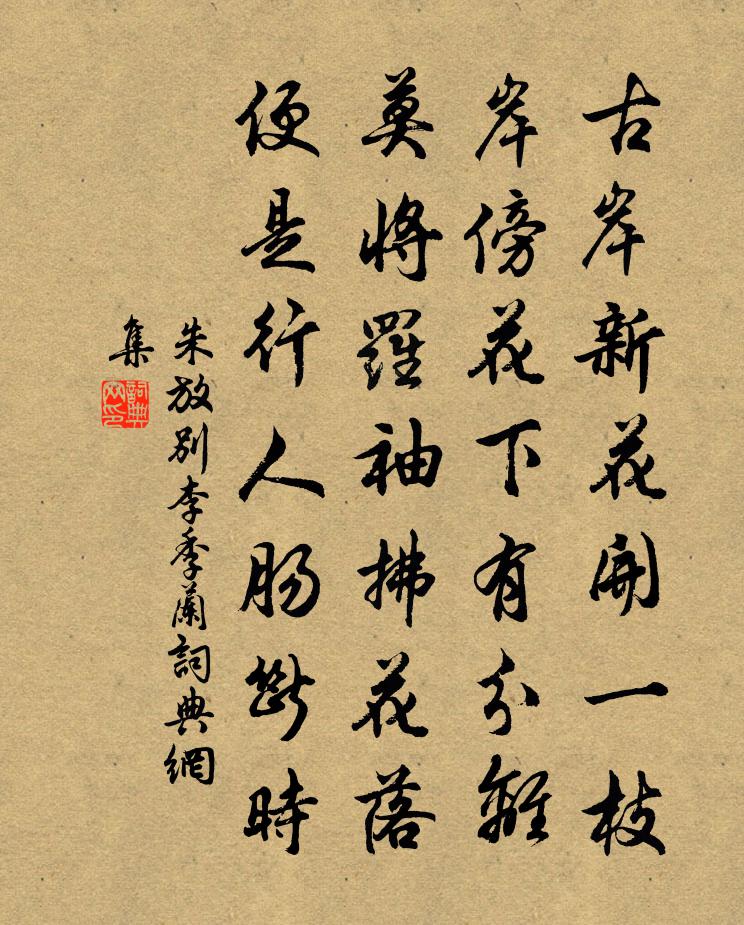 古岸新花開一枝
岸傍花下有分離
莫將羅袖拂花落
便是行人腸斷時
朱放別李季蘭詞典網
集
詞典網印